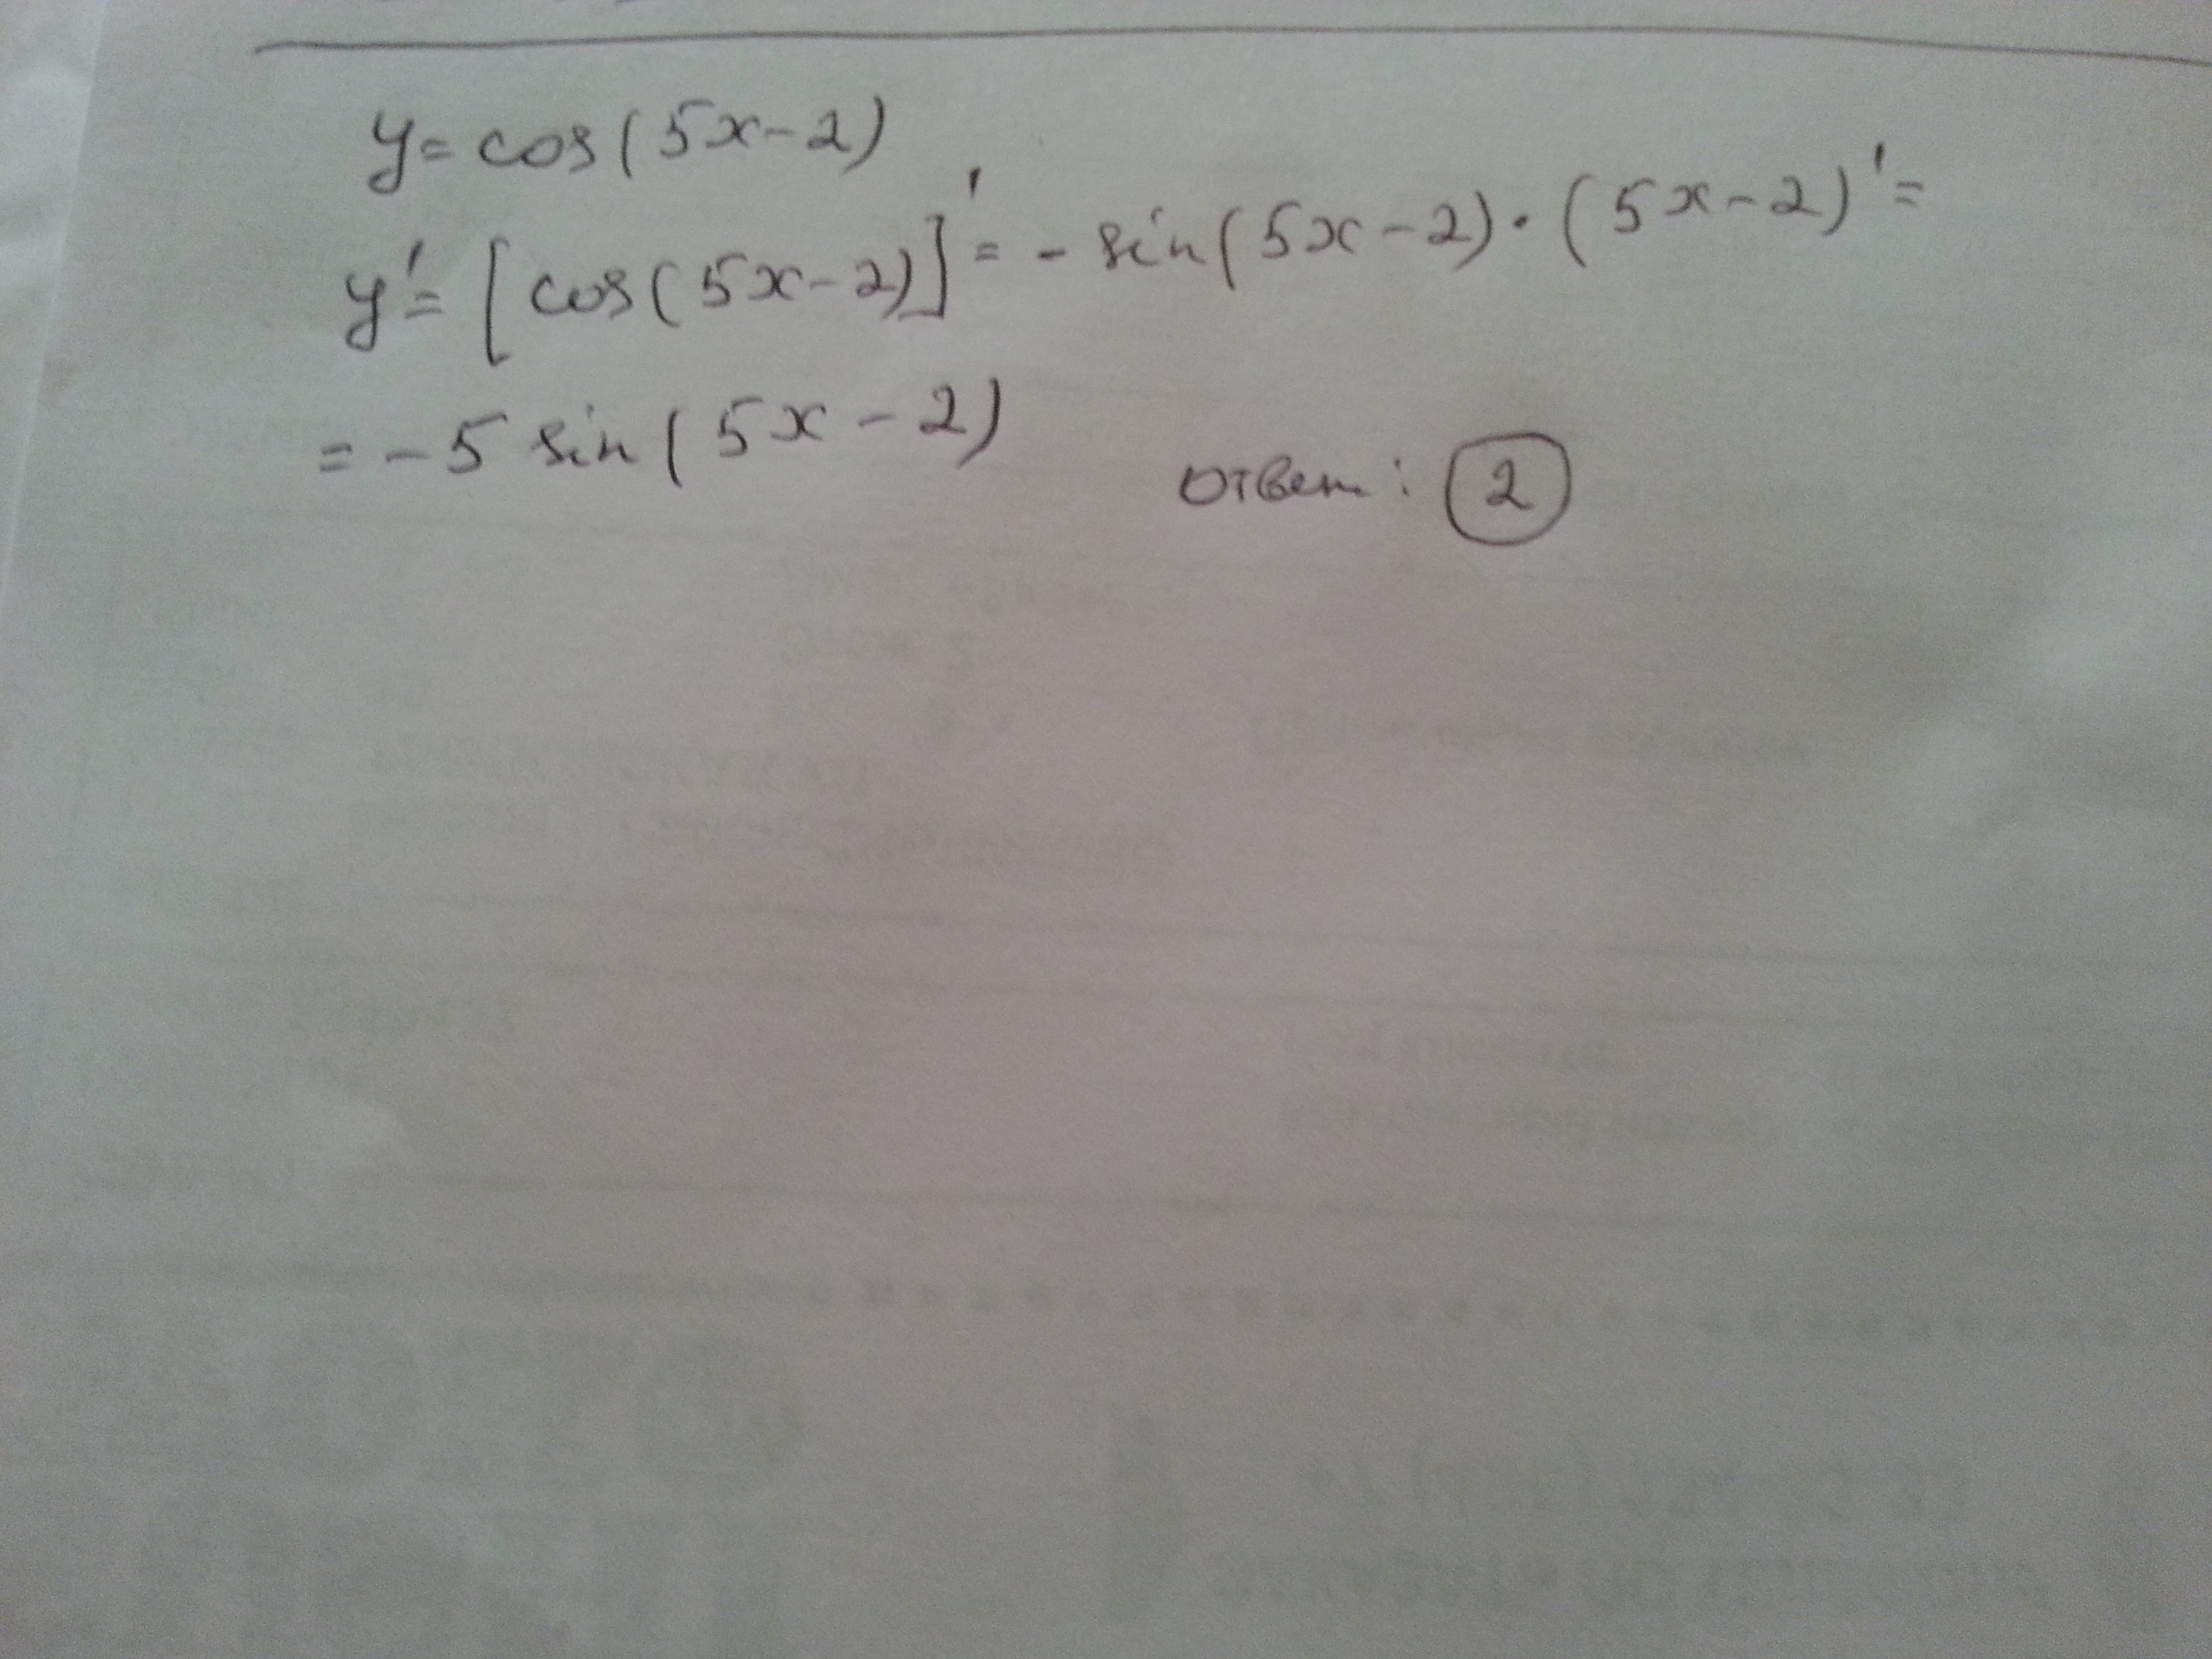 y = cos(5x-2)
y' = [cos(5x-2)]' = - sin(5x-2)·(5x-2)' =
= -5 sin(5x-2)
ответ: 2